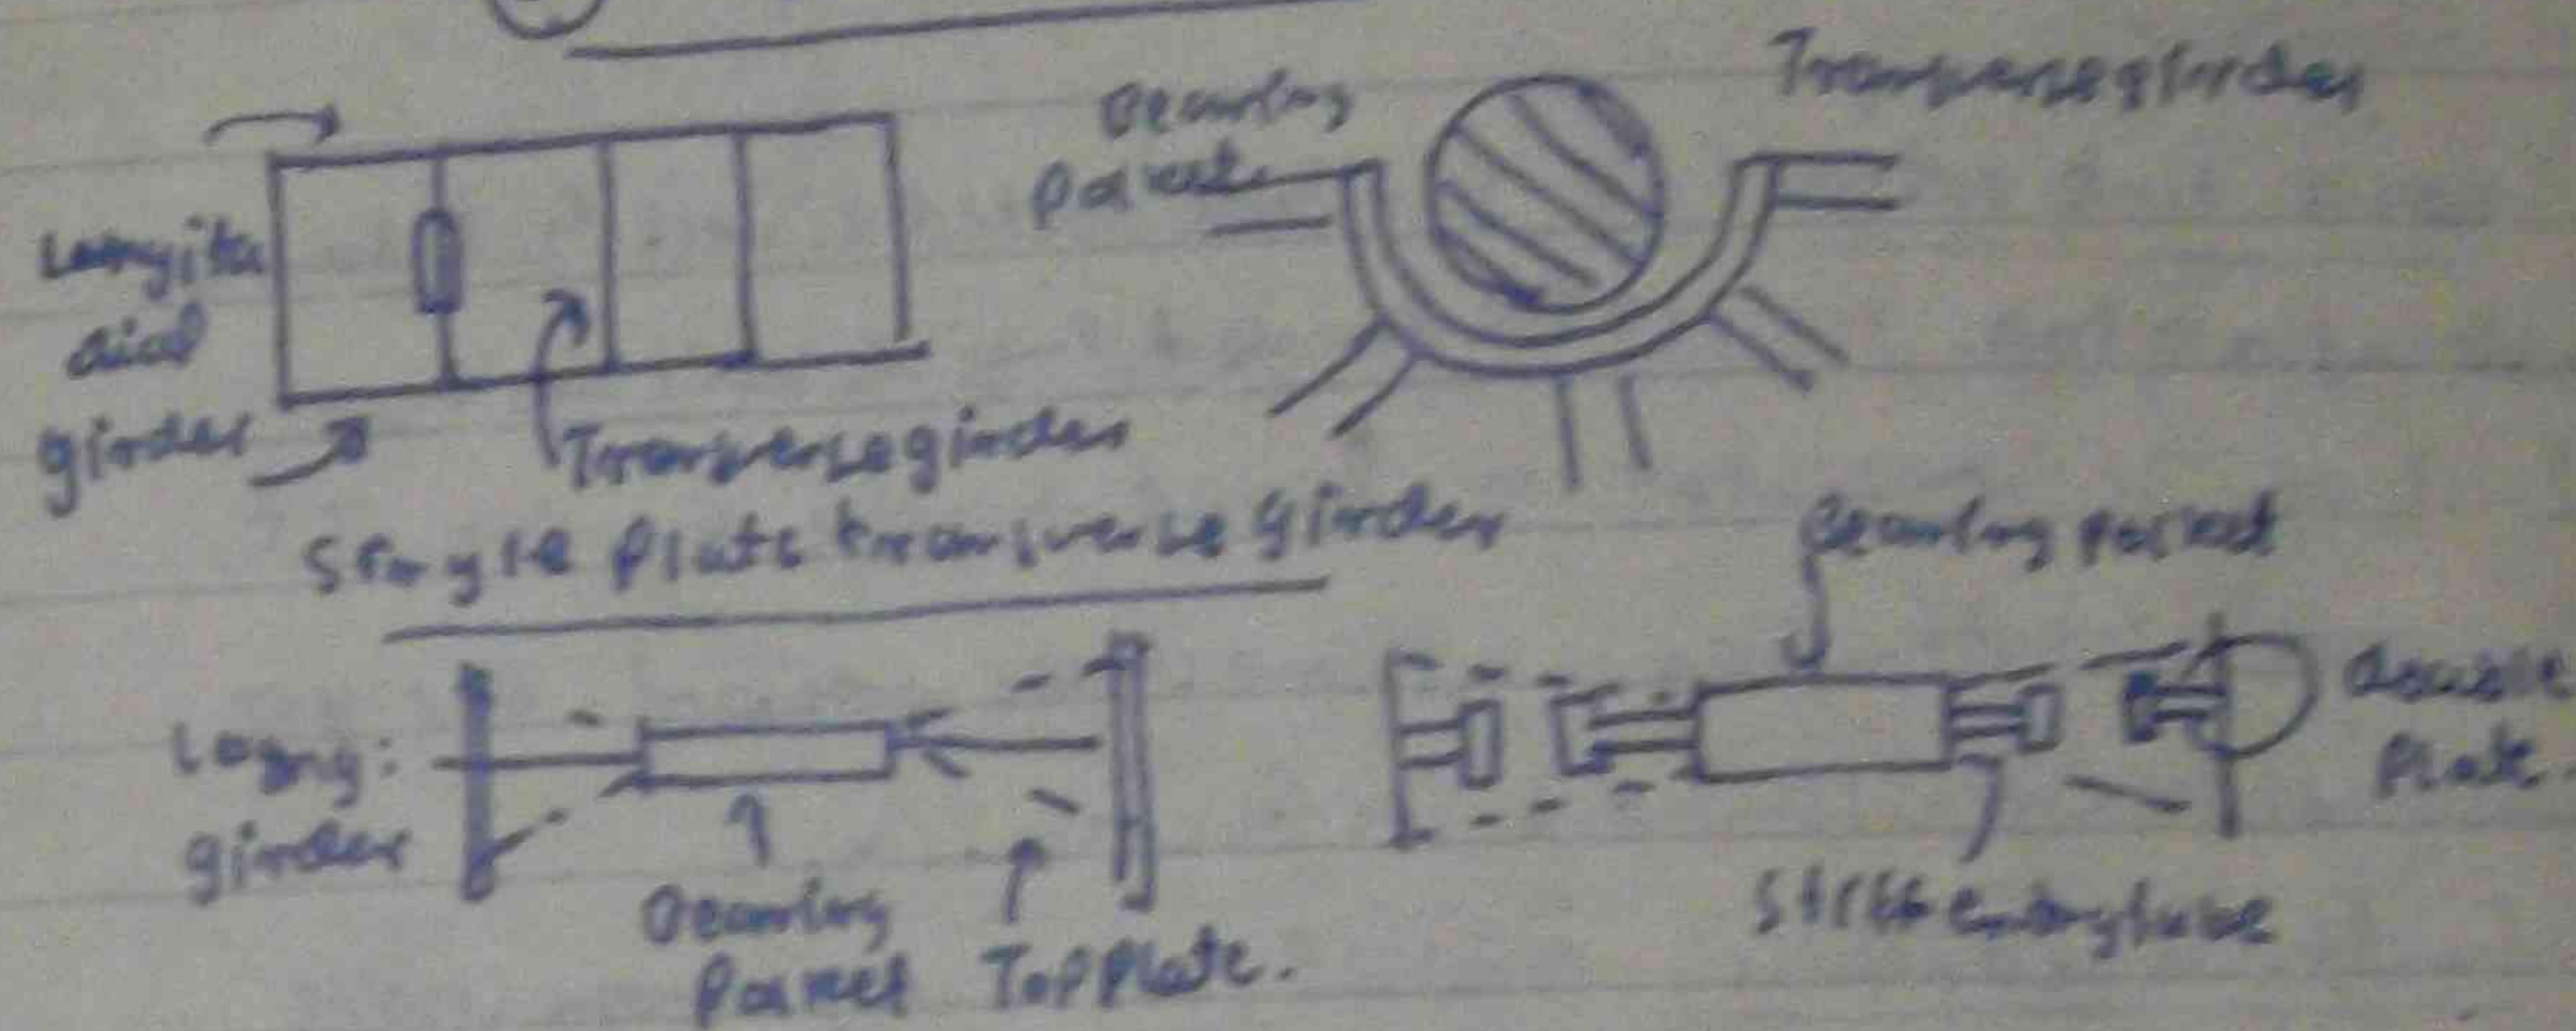 Bearing
Pocket
Transverse girder
Longitu
dial
girder
Transverse girder
Single Plate transverse Girder
Bearing pocket
Longi:
girder
Bearing
Pocket
Top Plate.
double
Plate.
Stiffening tube